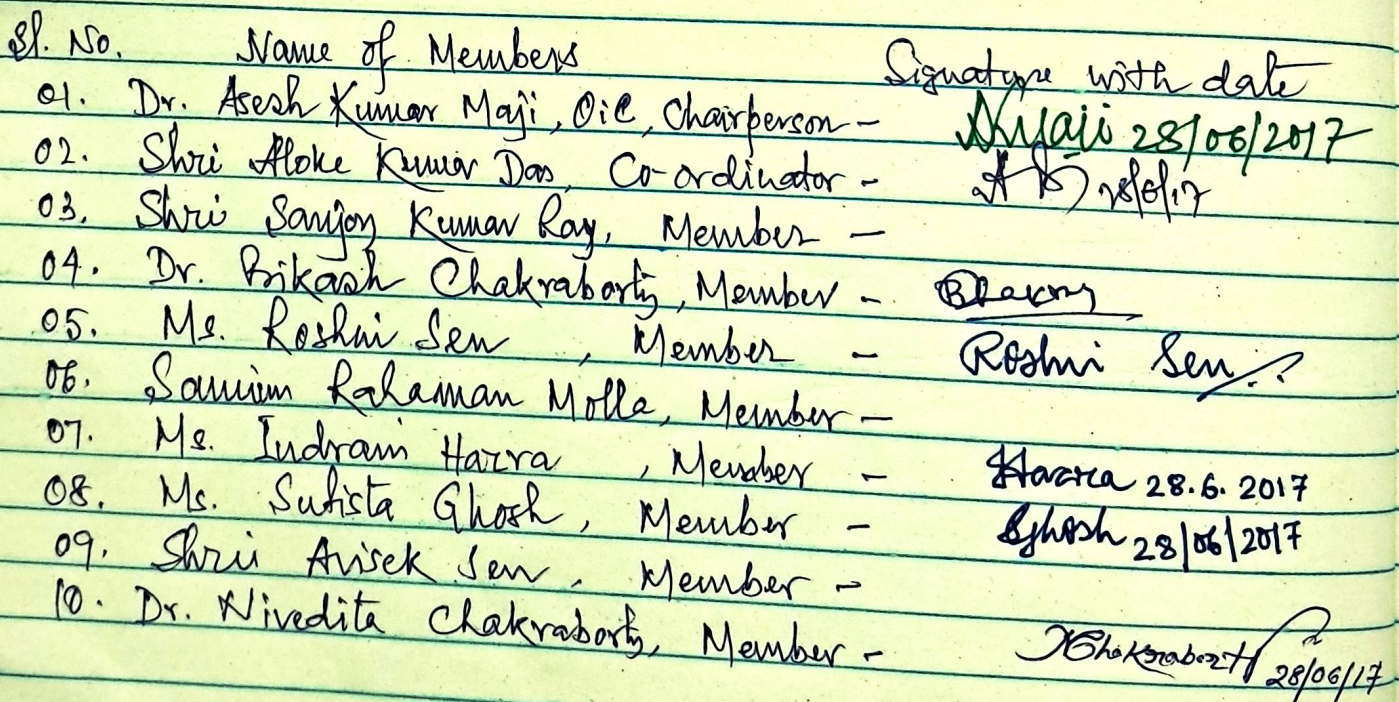 Sl. No. Name of Members Signature with date
01. Dr. Asesh Kumar Maji, OiC, Chairperson - 28/06/2017
02. Shri Aloke Kumar Das, Co-ordinator - 28/6/17
03. Shri Sanjoy Kumar Ray, Member -
04. Dr. Bikash Chakraborty, Member -
05. Ms. Roshni Sen, Member - Roshni Sen
06. Samim Rahaman Molla, Member -
07. Ms. Indrani Hazra, Member - Hazra 28.6.2017
08. Ms. Sutista Ghosh, Member - SGhosh 28/06/2017
09. Shri Avisek Sen, Member -
10. Dr. Nivedita Chakraborty, Member - NChakraborty 28/06/17